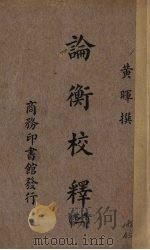 黃暉撰
論衡校釋
商務印書館發行